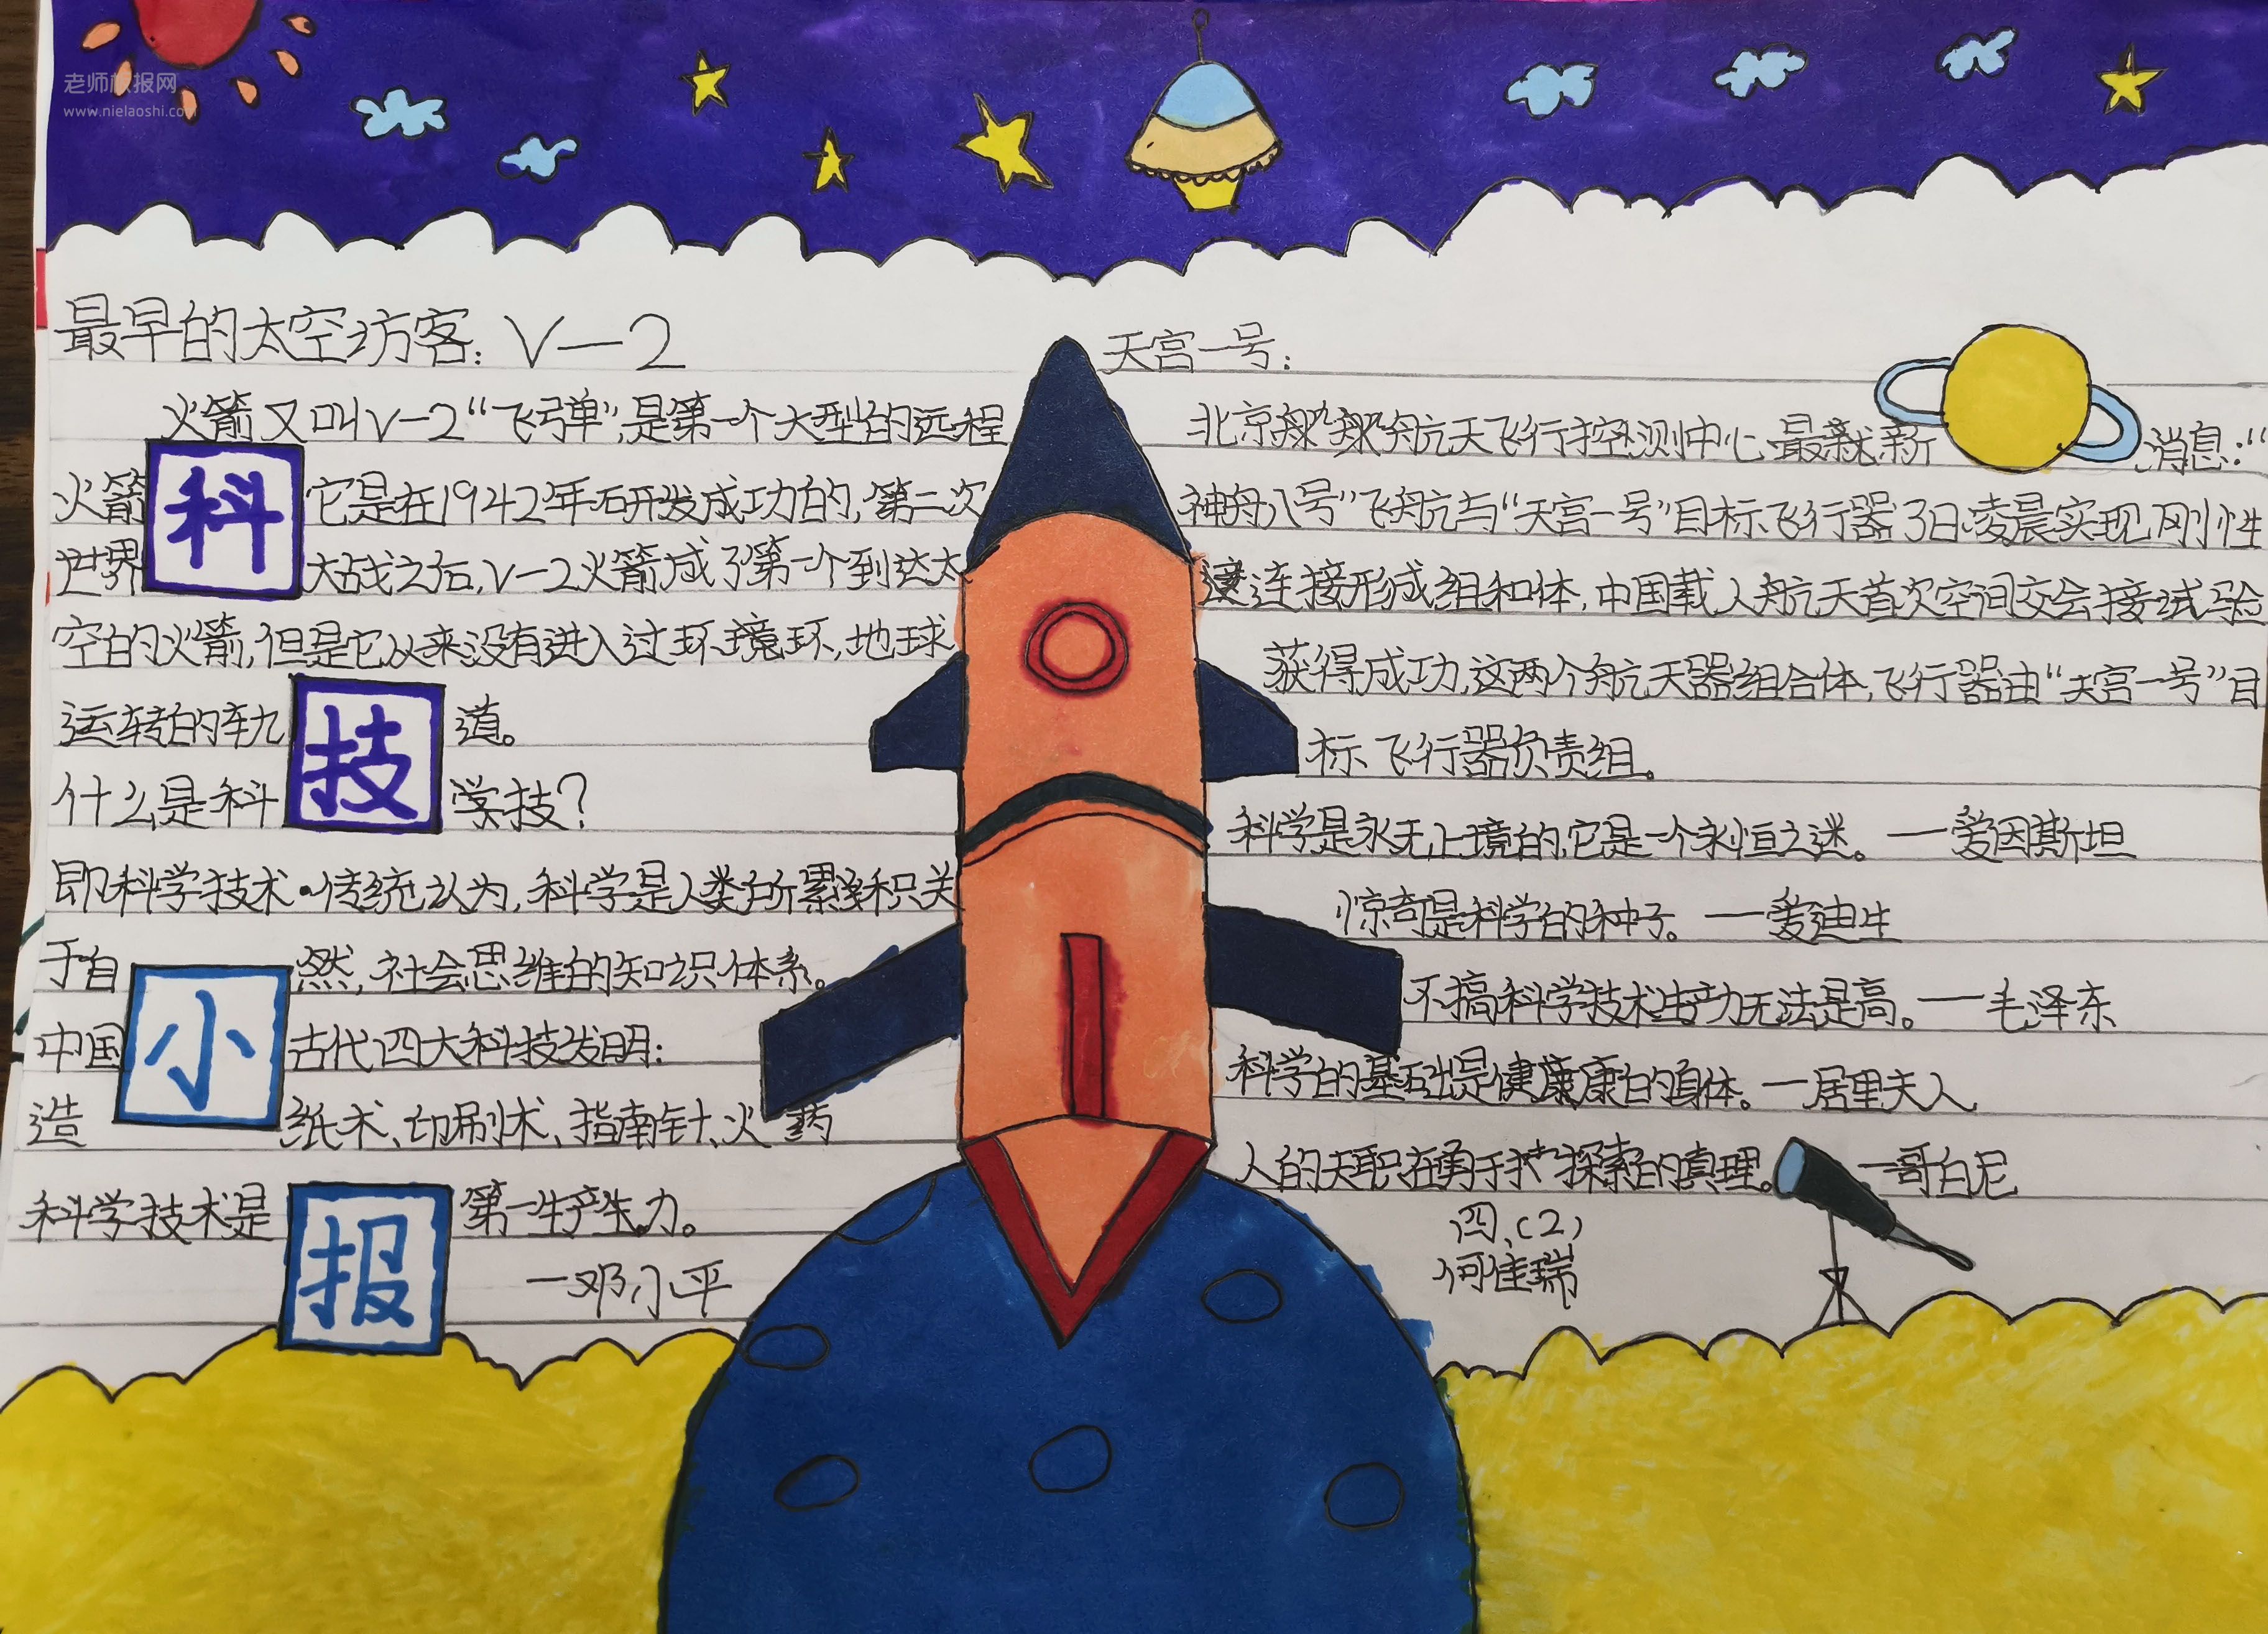 老师板报网
www.nielaoshi.com
最早的太空访客：V—2
火箭又叫V—2“飞弹”，是第一个大型的远程
火箭 它是在1942年研发成功的，第二次
世界 大战之后，V—2火箭成了第一个到达太
空的火箭，但是它从来没有进入过环境环，地球
运转的轨 道。
什么是科 学技？
即科学技术·传统认为，科学是人类所累积关
于自 然，社会思维的知识体系。
中国 古代四大科技发明：
造 纸术、印刷术、指南针、火药
科学技术是 第一生产生力。
—邓小平
科
技
小
报
天宫一号：
北京航天飞行控测中心最新 消息：“
神舟八号”飞航与“天宫一号”目标飞行器了日凌晨实现刚性
连接形成组和体，中国载人航天首次空间交会接试验
获得成功，这两个航天器组合体，飞行器由“天宫一号”目
标飞行器负责组。
科学是永无止境的，它是一个永恒之迷。——爱因斯坦
惊奇是科学的种子。——爱迪生
不搞科学技术生产力无法是高。——毛泽东
科学的基础是健康的身体。—居里夫人
人的天职在勇于探索的真理。—哥白尼
四、(2)
何佳瑞